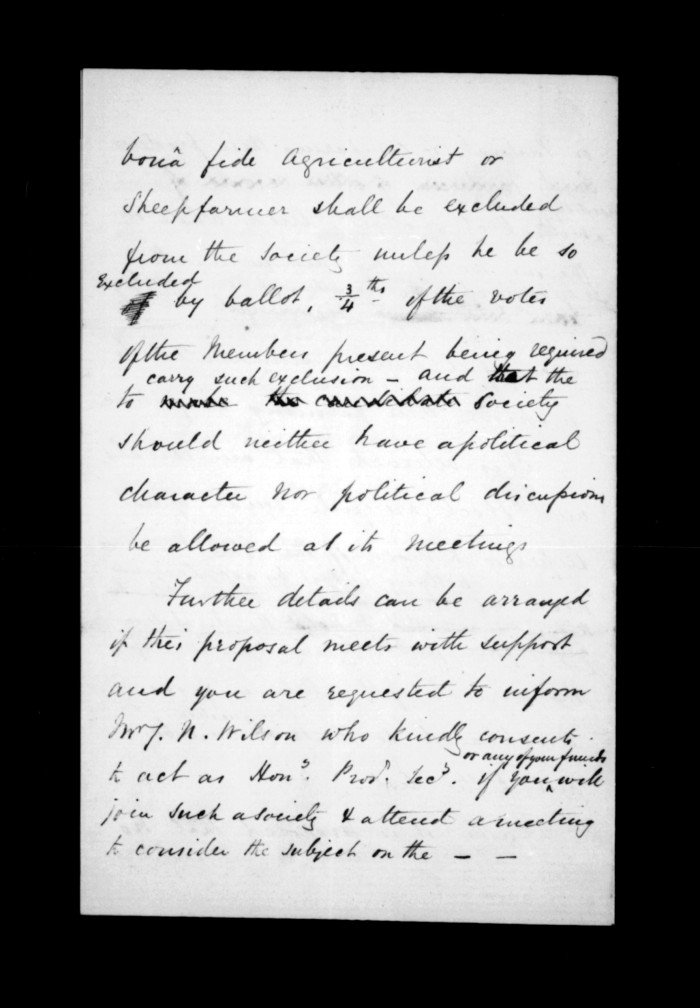 bonâ fide Agriculturist or
Sheepfarmer shall be excluded
from the Society unless he be so
Excluded
by ballot, 3/4 ths of the votes
of the Members present being required
carry such exclusion – and that the
to make the candidate Society
should neither have a political
character nor political discussions
be allowed at its meetings
Further details can be arranged
if this proposal meets with support
and you are requested to inform
Mr J. N. Wilson who kindly consents
or any of your friends
to act as Hony. Prov. Secy. if you will
join such a society & attend a meeting
to consider the subject on the – –